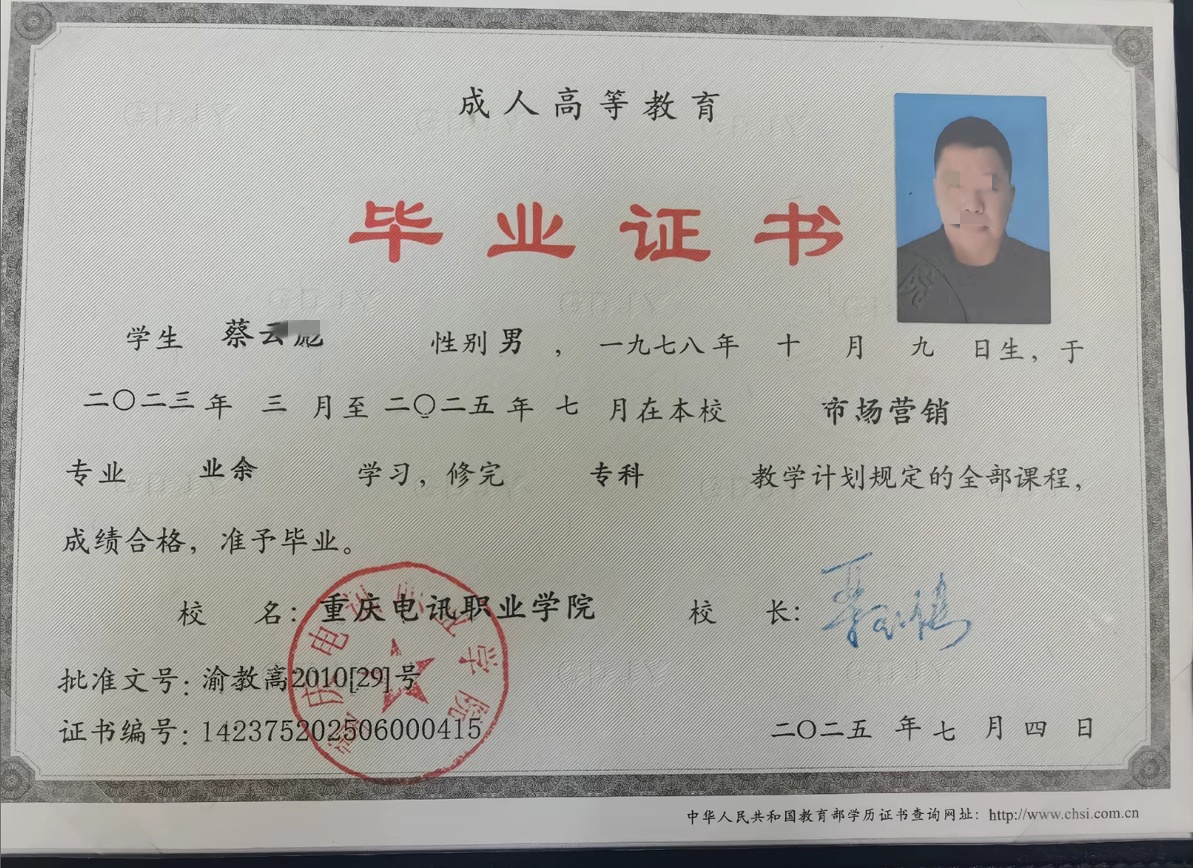 成人高等教育
毕业证书
学生 蔡云 性别 男 ，一九七八年 十 月 九 日生，于
二〇二三年 三 月至 二〇二五年 七 月在本校 市场营销
专业 业余 学习，修完 专科 教学计划规定的全部课程，
成绩合格，准予毕业。
校 名：重庆电讯职业学院 校 长：
批准文号：渝教高2010[29]号
证书编号：142375202506000415 二〇二五 年 七 月 四 日
中华人民共和国教育部学历证书查询网址：http://www.chsi.com.cn